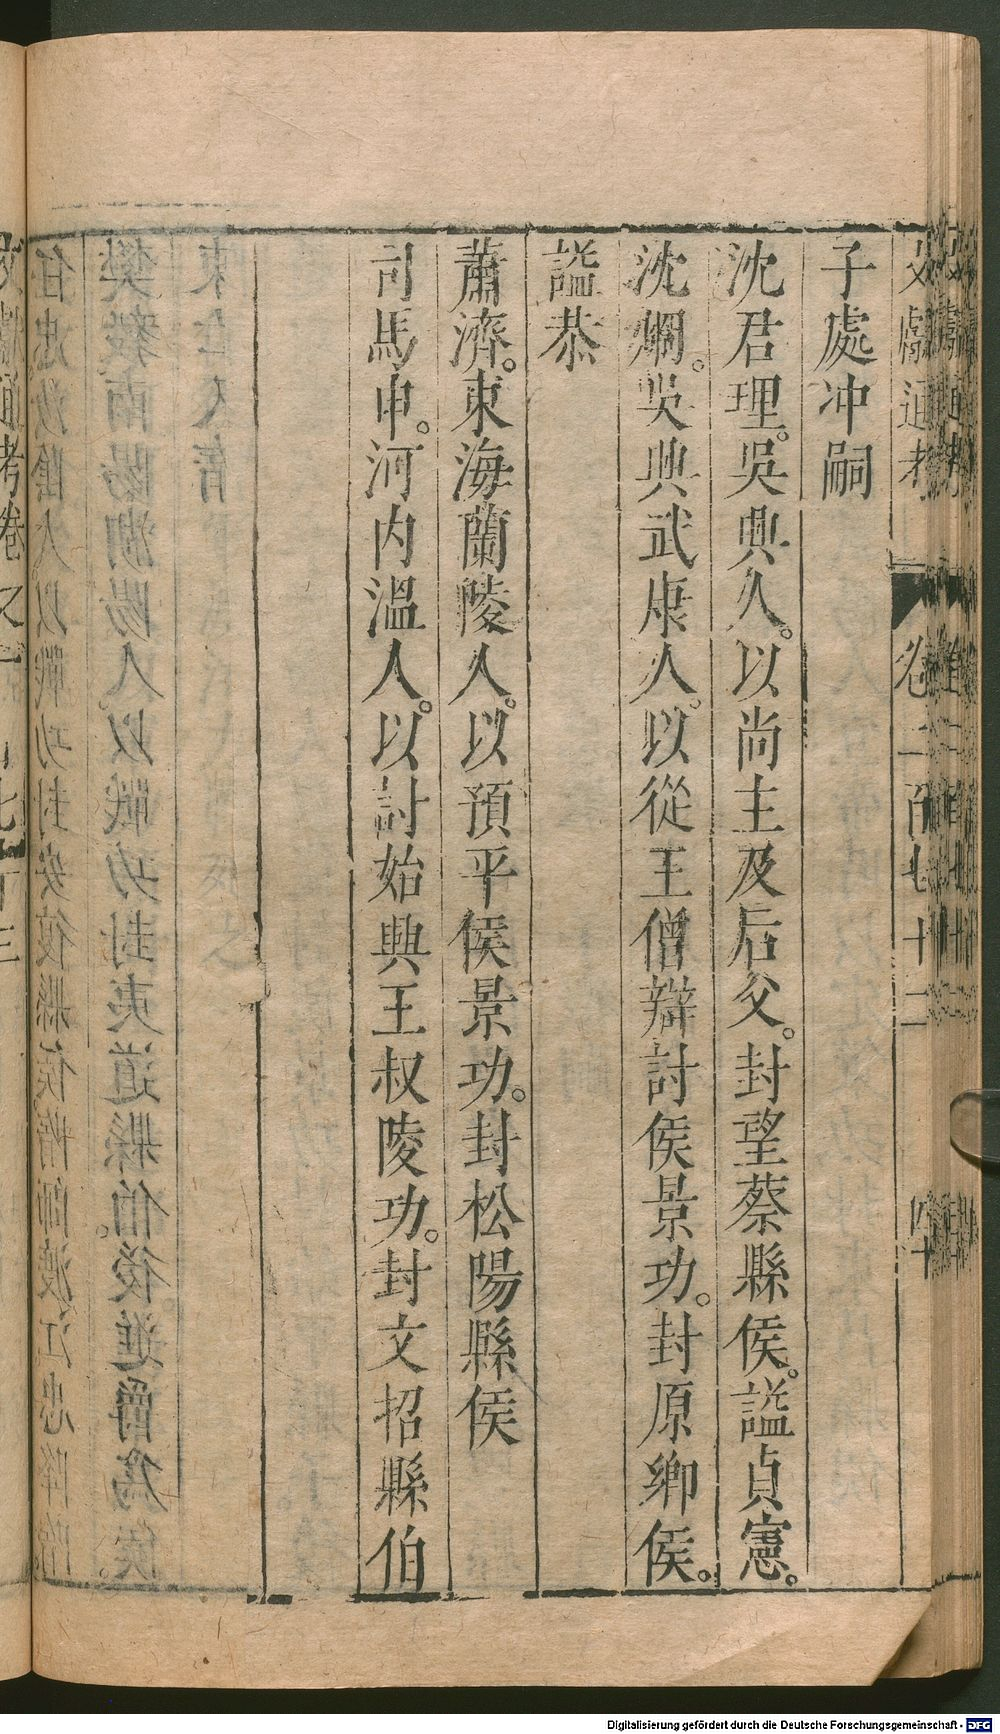 文獻通考 卷二百七十二 四十
子處冲嗣
沈君理。吳興人。以尚主及后父。封望蔡縣侯。謚貞憲。
沈炯。吳興武康人。以從王僧辯討侯景功。封原鄉侯。
謚恭
蕭濟。東海蘭陵人。以預平侯景功。封松陽縣侯
司馬申。河內溫人。以討始興王叔陵功。封文招縣伯
Digitalisierung gefördert durch die Deutsche Forschungsgemeinschaft - DFG